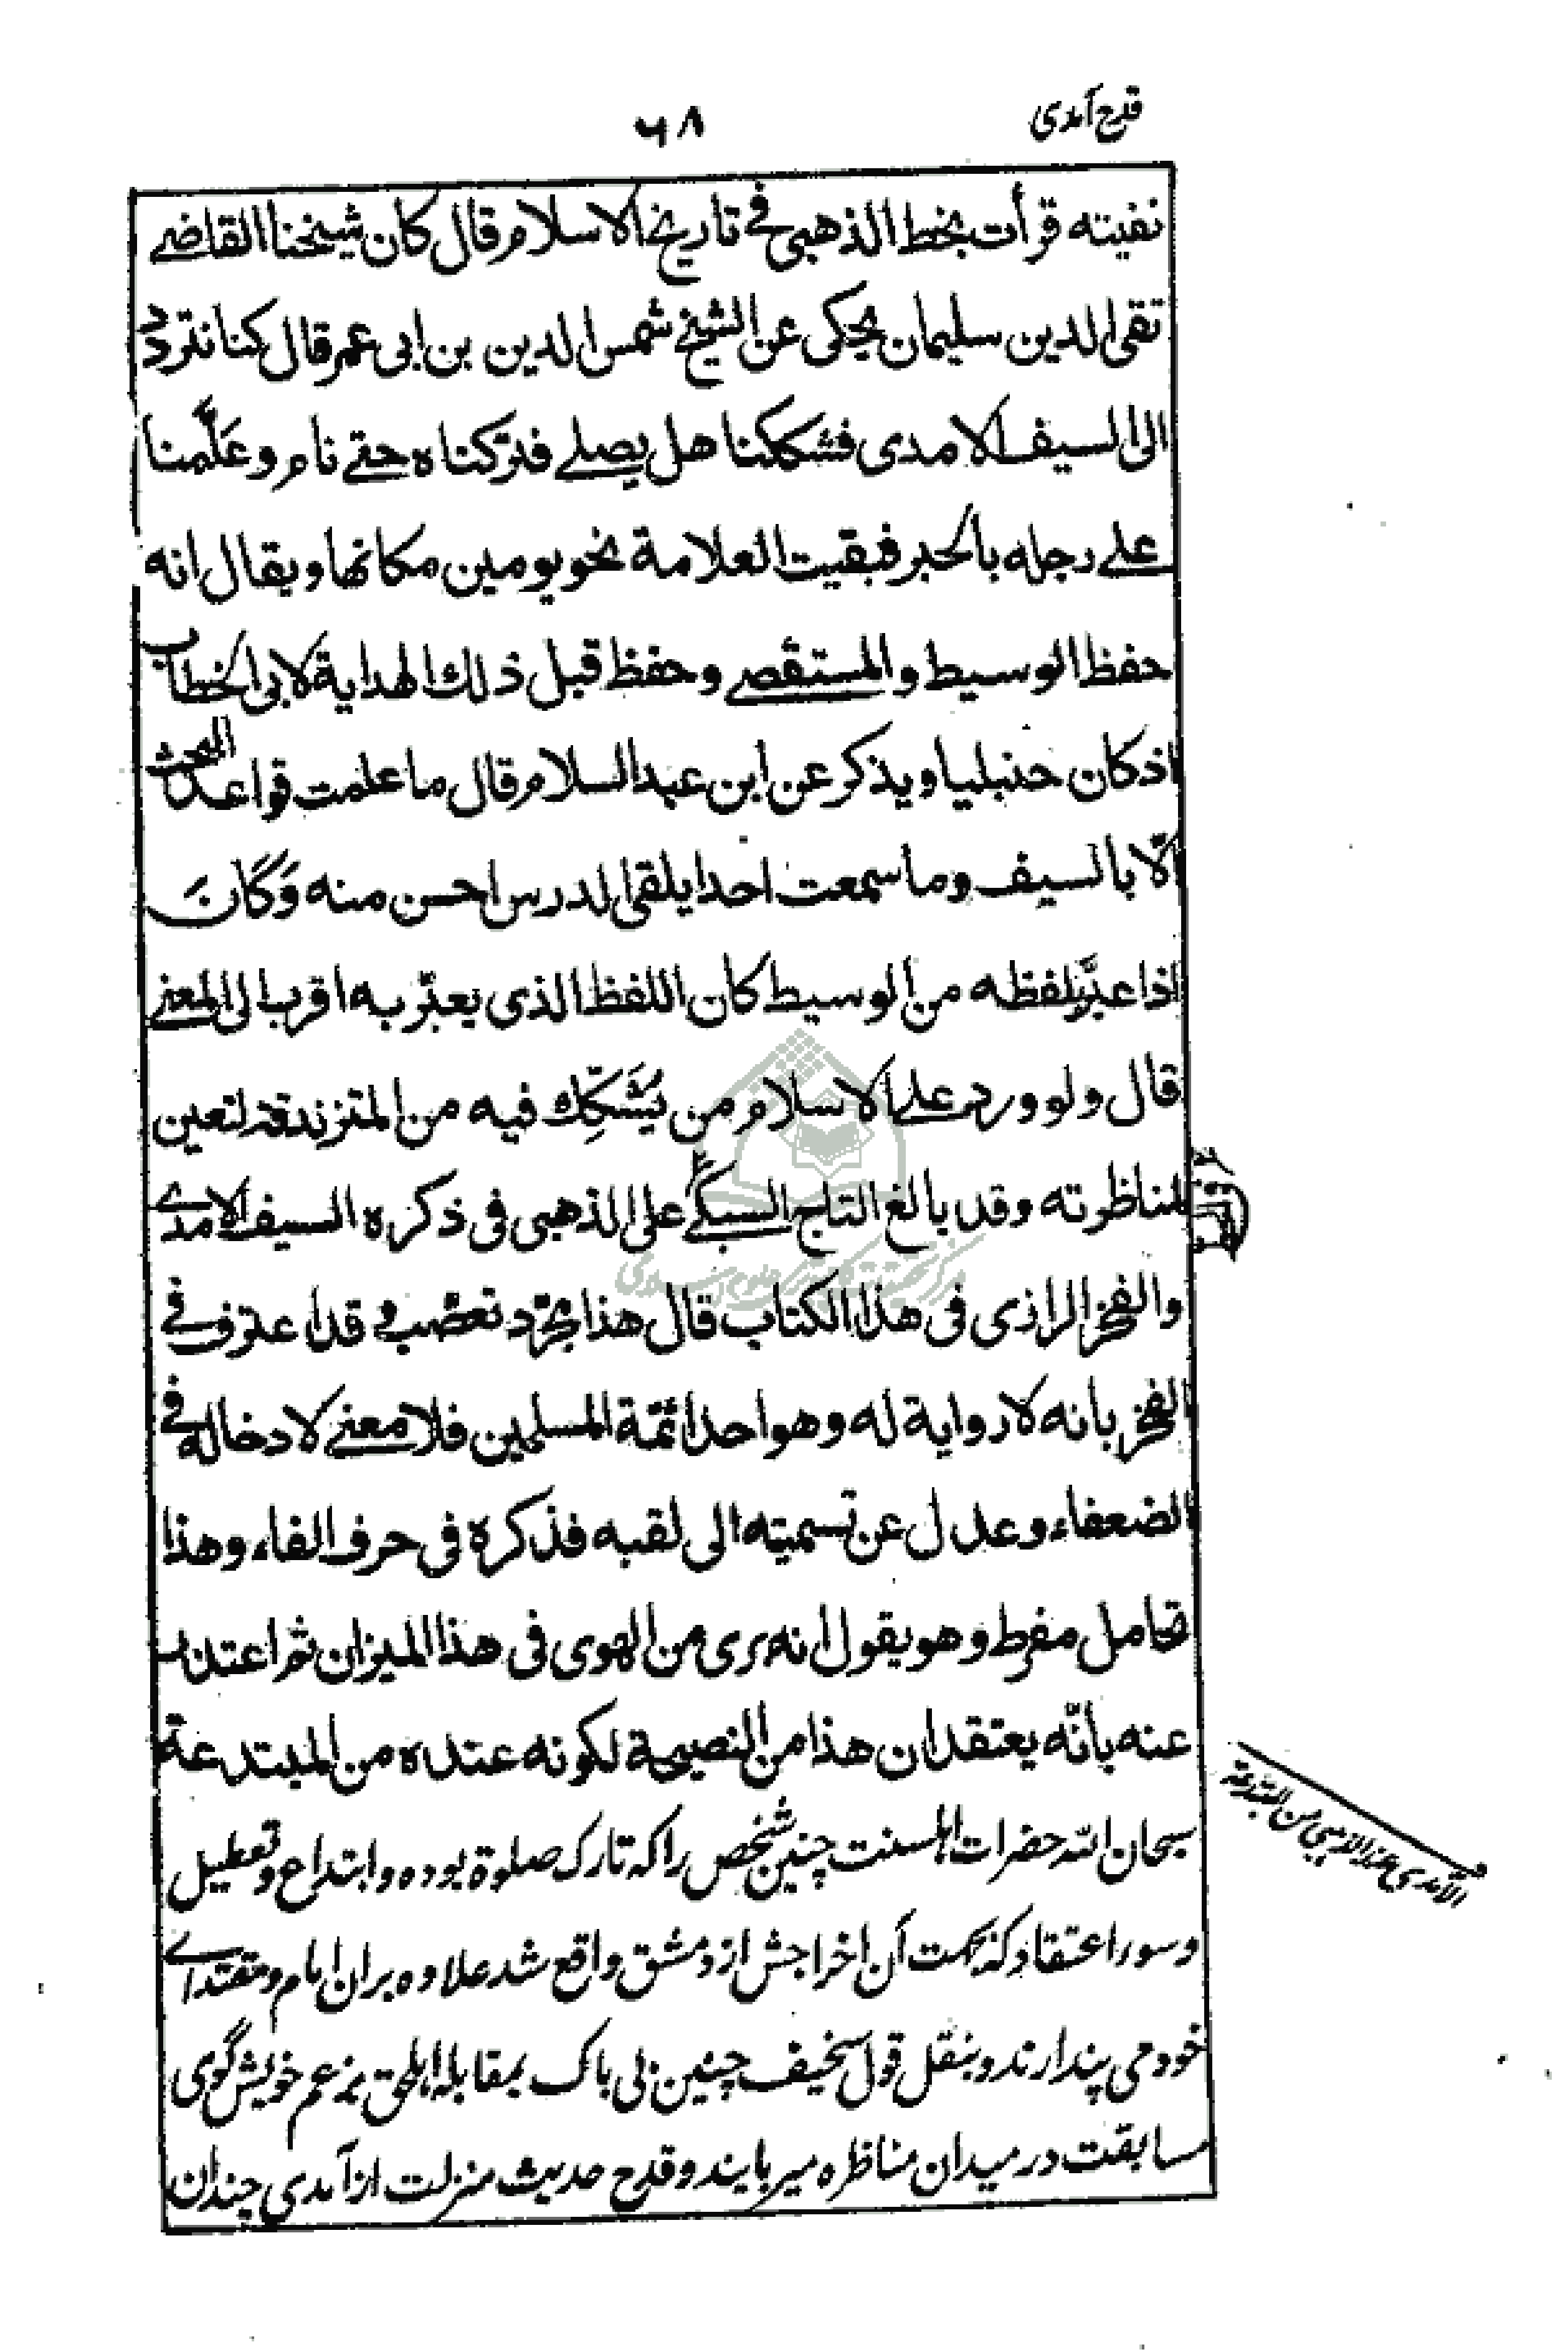 قدح آمدی
٦٨
نفيته قرأت بخط الذهبی فے تاريخ الاسلام قال كان شيخنا القاضے
تقی الدين سليمان يحكی عن الشيخ شمس الدين بن ابی عمر قال كنا نتردد
الی السيف الامدی فشككنا هل يصلے فتركناه حتے نام و عَلَّمنا
علے رجله بالحبر فبقيت العلامة نحو يومين مكانها و يقال انه
حفظ الوسيط و المستقصے و حفظ قبل ذلك الهداية لابی الخطاب
اذ كان حنبليا و يذكر عن ابن عبد السلام قال ما علمت قواعد البحث
الّا بالسيف و ما سمعت احدا يلقی الدرس احسن منه وَكَانَ
اذا عبَّر بلفظه من الوسيط كان اللفظ الذی يعبّر به اقرب الی المعنے
قال ولو ورد علے الاسلام من يُشَكِّك فيه من المتزندقة لتعين
لمناظرته و قد بالغ التاج السبكے علی الذهبی فی ذكره السيف الامدے
و الفخر الرازی فی هذا الكتاب قال هذا مجرّد تعصّب و قد اعترف فے
الفخر بانه لا رواية له و هو احد ائمّة المسلمين فلا معنے لادخاله فے
الضعفاء و عدل عن تسميته الی لقبه فذكره فی حرف الفاء و هذا
تحامل مفرط و هو يقول انه بری من الهوی فی هذا الميزان ثم اعتذر
عنه بانّه يعتقد ان هذا من النصيحة لكونه عنده من المبتدعة
سبحان الله حضرات اهلسنت چنين شخص را كه تارك صلوة بوده و ابتداع و تعطيل
و سور اعتقاد كه بجهت آن اخراجش از دمشق واقع شد علاوه بران امام و مقتداے
خود می پندارند و بنقل قول سخيف چنين بی باك بمقابلهٔ اهلحق بزعم خويش گوی
مسابقت در ميدان مناظره ميربايند و قدح حديث منزلت از آمدی چندان
الآمدی عند الذهبی من المبتدعة